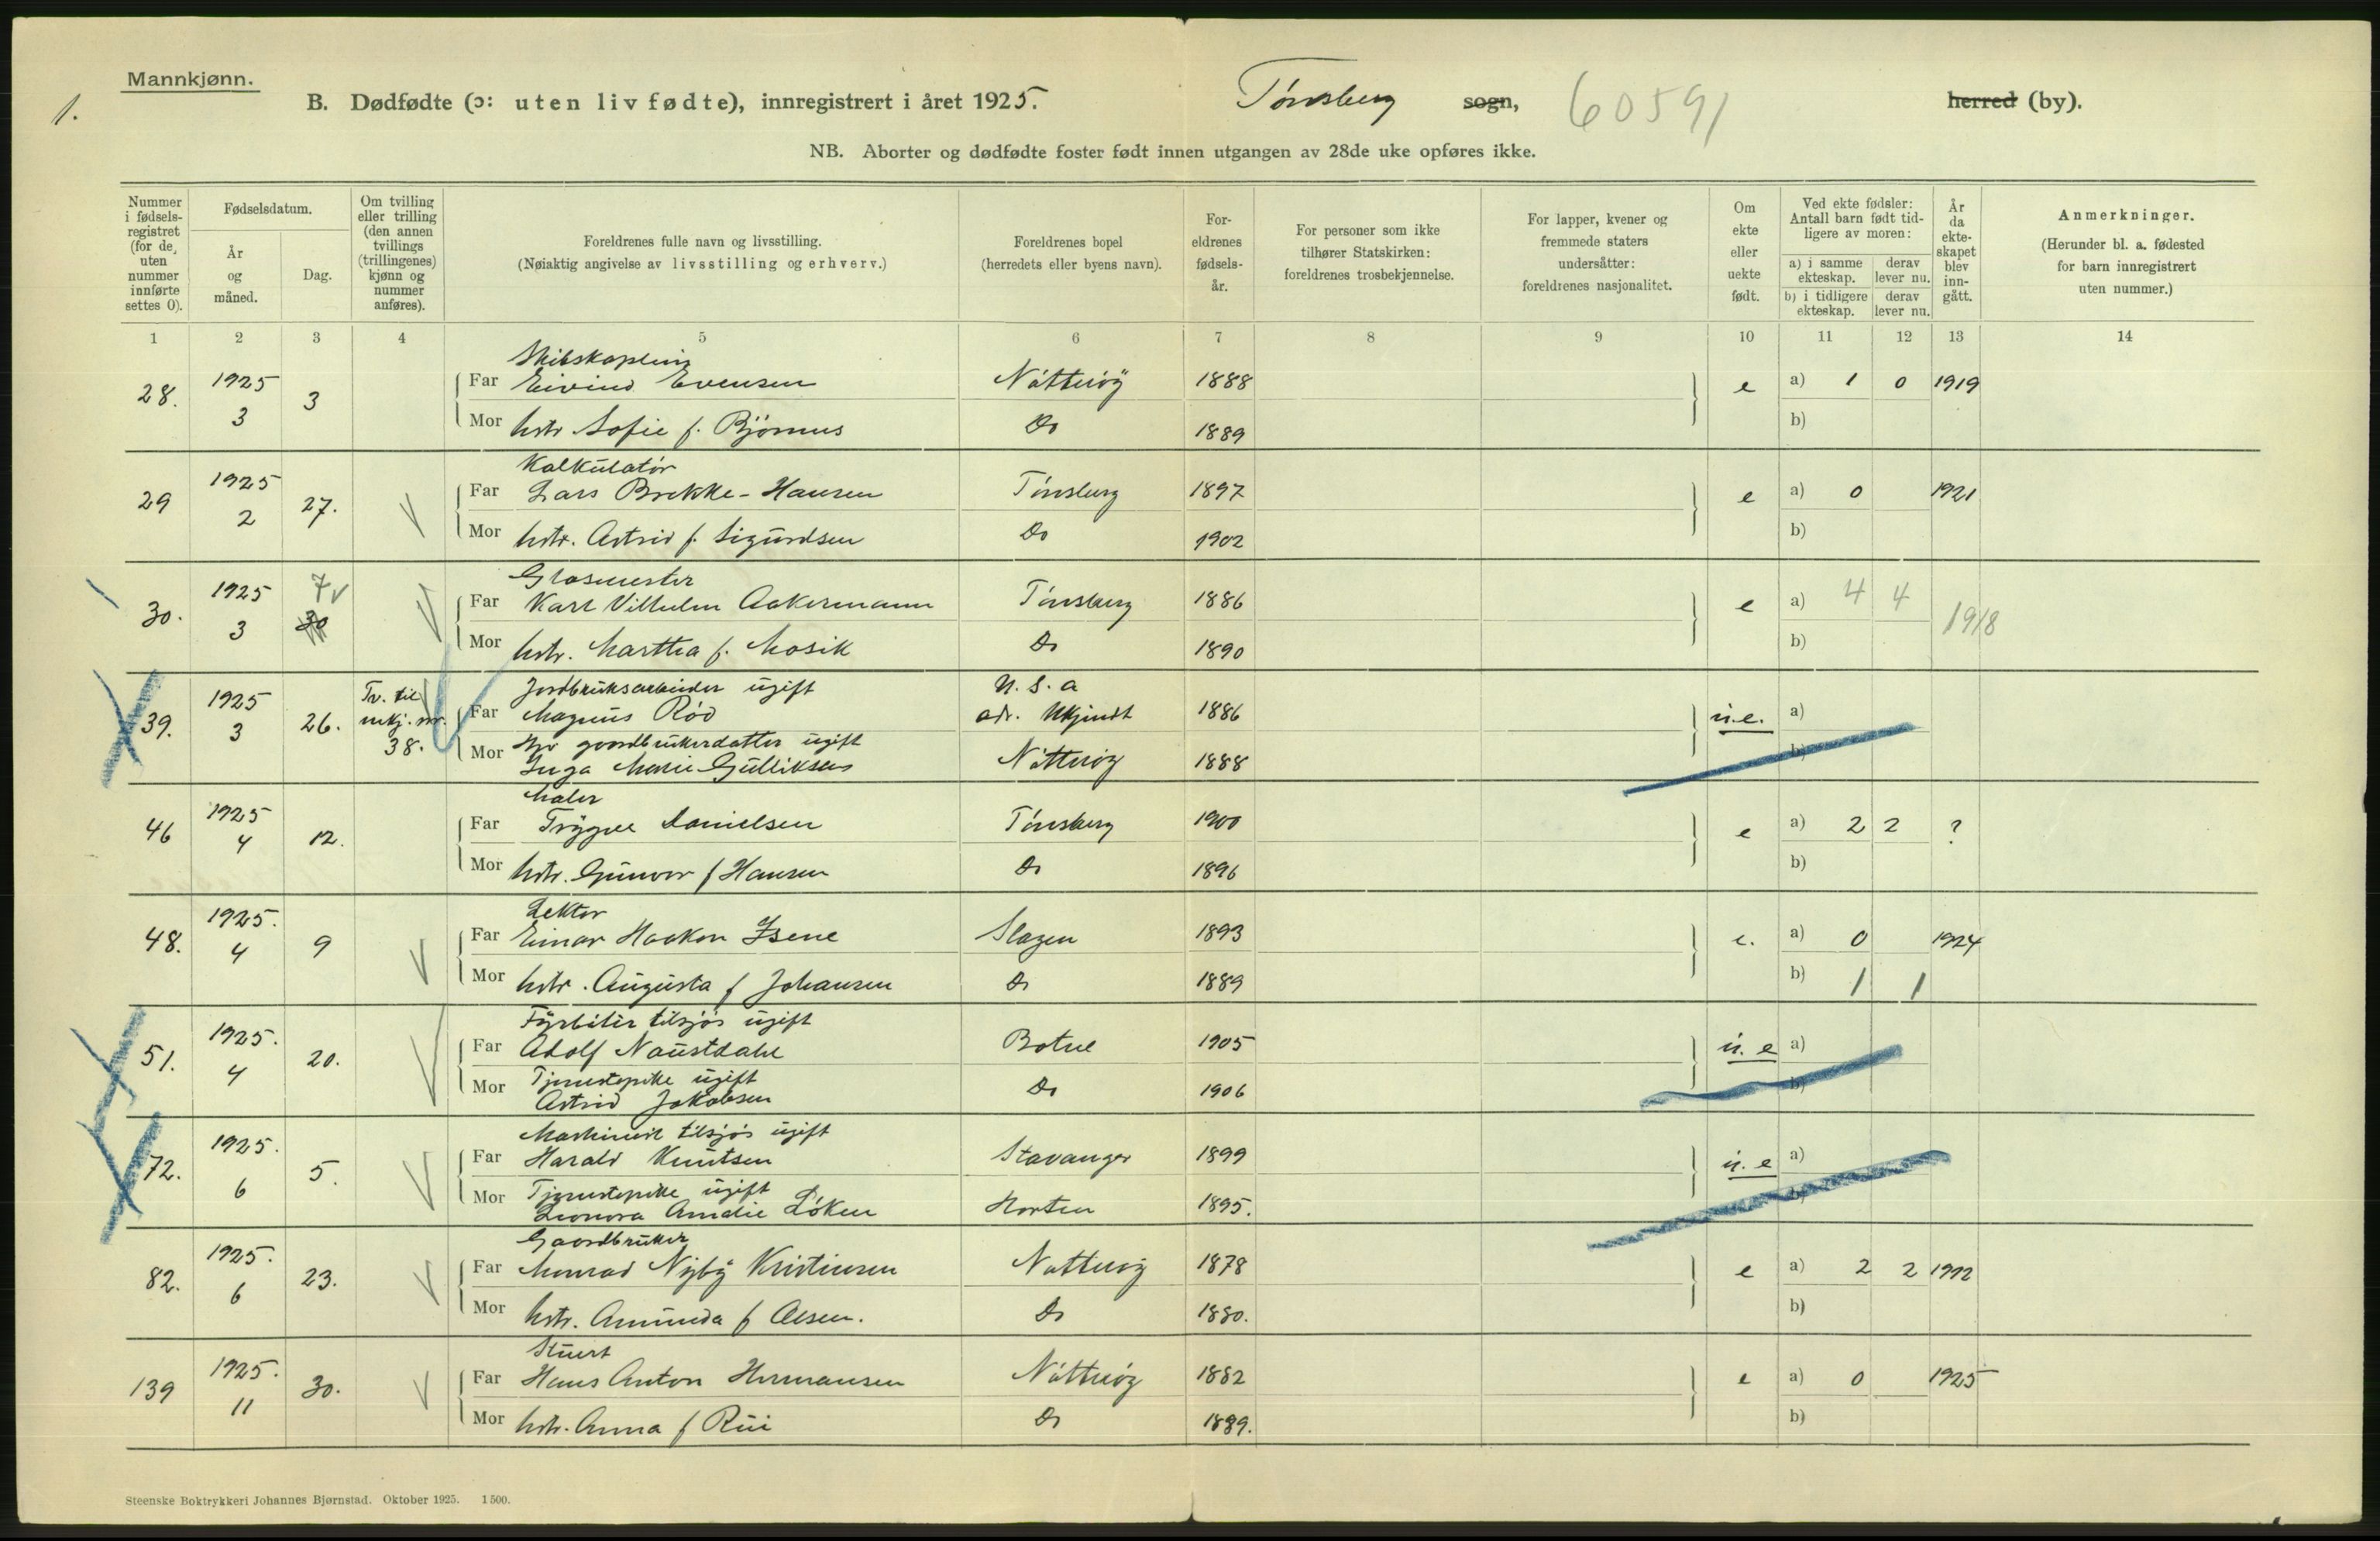 Mannkjønn.
1.
B. Dødfødte (ɔ: uten liv fødte), innregistrert i året 1925.
Tønsberg sogn, 60591 herred (by).
NB. Aborter og dødfødte foster født innen utgangen av 28de uke opføres ikke.
Nummer i fødsels-registret (for de uten nummer innførte settes 0).
Fødselsdatum.
År og måned.
Dag.
Om tvilling eller trilling (den annen tvillings (trillingenes) kjønn og nummer anføres).
Foreldrenes fulle navn og livsstilling.
(Nøiaktig angivelse av livsstilling og erhverv.)
Foreldrenes bopel
(herredets eller byens navn).
For-eldrenes fødsels-år.
For personer som ikke tilhører Statskirken: foreldrenes trosbekjennelse.
For lapper, kvener og fremmede staters undersåtter: foreldrenes nasjonalitet.
Om ekte eller uekte født.
Ved ekte fødsler: Antall barn født tid-ligere av moren:
a) i samme ekteskap. derav lever nu.
b) i tidligere ekteskap. derav lever nu.
År da ekte-skapet blev inn-gått.
Anmerkninger.
(Herunder bl. a. fødested for barn innregistrert uten nummer.)
1 2 3 4 5 6 7 8 9 10 11 12 13 14
Skibskaptein
28. 1925 3 3 Far Eivind Evensen Nøtterøy 1888 e a) 1 0 1919
Mor hstr. Sofie f. Bjørnus Do 1889 b)
Kalkulatør
29 1925 2 27. Far Lars Brekke-Hansen Tønsberg 1897 e a) 0 1921
Mor hstr. Astrid f. Sigurdsen Do 1902 b)
Glasmester
30. 1925 3 7 30 Far Karl Vilhelm Aakermann Tønsberg 1886 e a) 4 4 1918
Mor hstr. Martha f. Mosik Do 1890 b)
Jordbruksarbeider ugift U.S.A
39. 1925 3 26. Tv. til mkj. nr. 38. Far Magnus Rød adr. Ukjendt 1886 u.e. a)
Mor gaardbrukerdatter ugift
Inga Marie Gulliksen Nøtterøy 1888 b)
Maler
46 1925 4 12. Far Trygve Danielsen Tønsberg 1900 e a) 2 2 ?
Mor hstr. Gunvor f Hansen Do 1896 b)
Lektor
48. 1925. 4 9 Far Einar Haakon Isene Slagen 1893 e. a) 0 1924
Mor hstr. Augusta f Johansen Do 1889 b) 1 1
Fyrbøter tilsjøs ugift
51. 1925. 4 20. Far Adolf Naustdahl Botne 1905 u.e a)
Mor Tjenestepike ugift
Astrid Jakobsen Do 1906 b)
Maskinist tilsjøs ugift
72. 1925. 6 5. Far Harald Knutsen Stavanger 1899 u.e a)
Mor Tjenestepike ugift
Leonora Amalie Løken Horten 1895. b)
Gaardbruker
82. 1925. 6 23. Far Monrad Nyby Kristiansen Nøtterøy 1878 e a) 2 2 1912
Mor hstr. Amunda f Olsen. Do 1880. b)
Stuert
139 1925. 11 30. Far Hans Anton Hermansen Nøtterøy 1882 e a) 0 1925
Mor hstr. Anna f Rui Do 1889. b)
Steenske Boktrykkeri Johannes Bjørnstad. Oktober 1925. 1500.